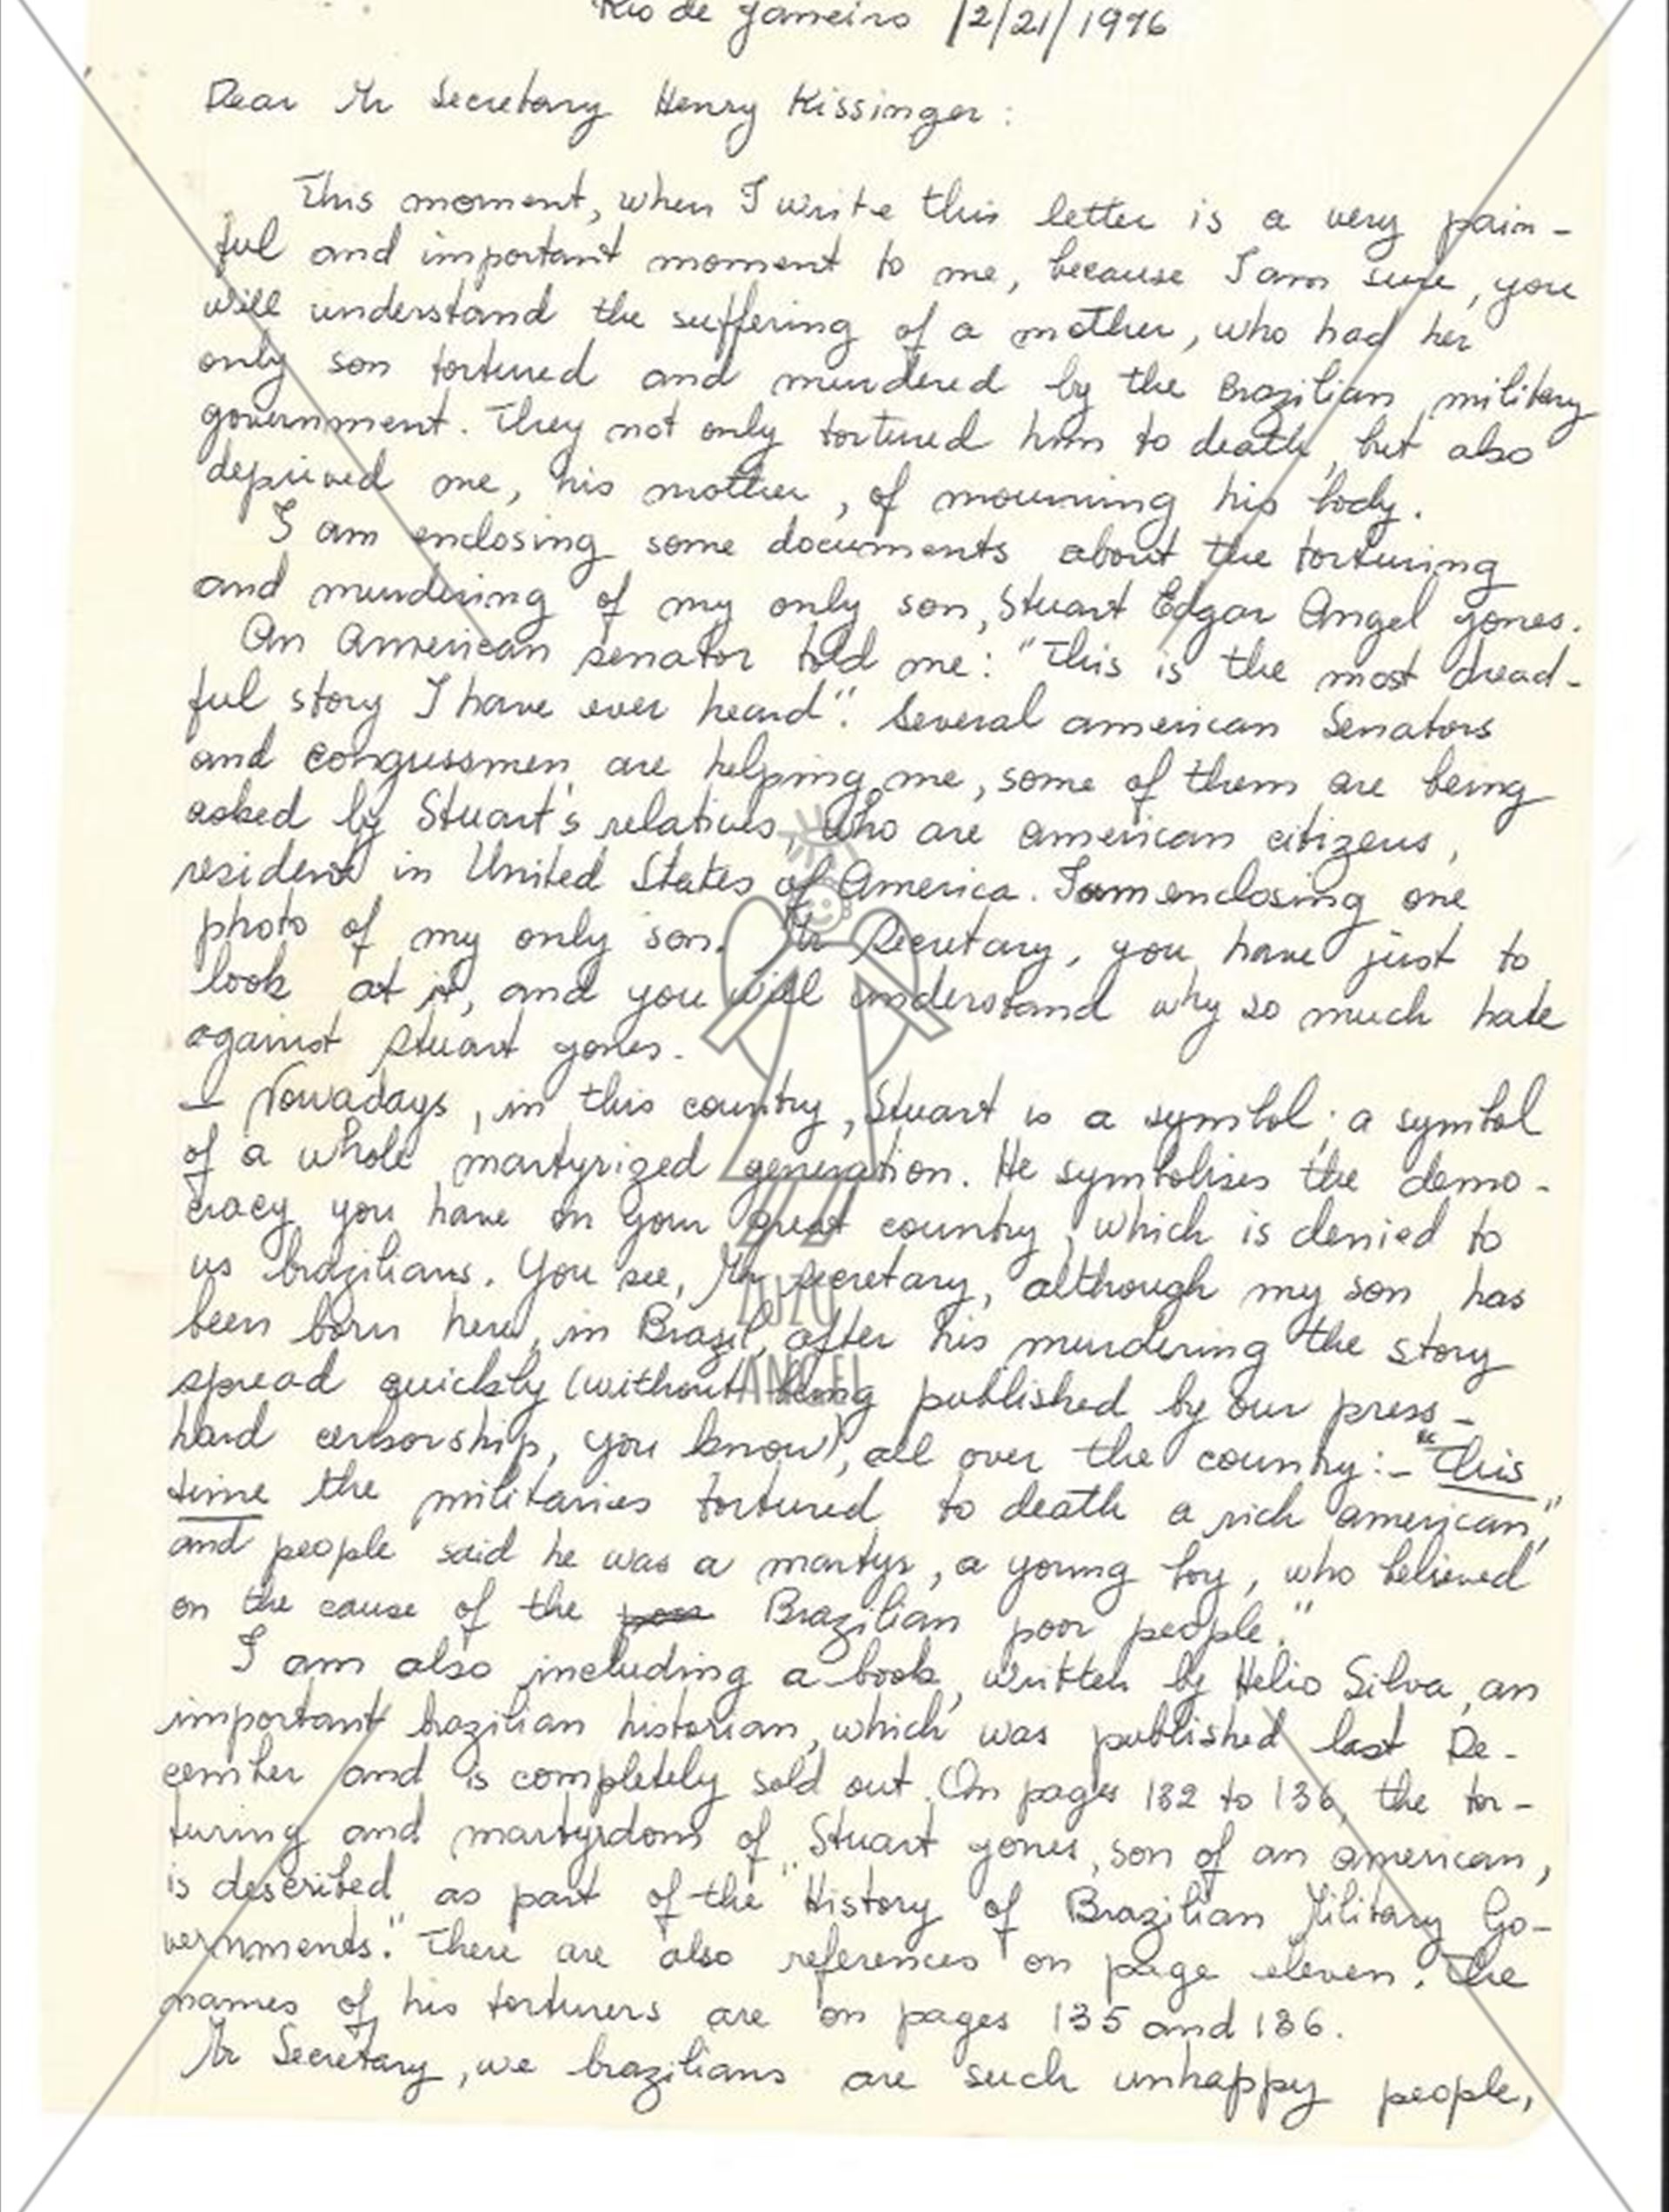 Rio de Janeiro 12/21/1976
Dear Mr Secretary Henry Kissinger:
This moment, when I write this letter is a very pain-
ful and important moment to me, because I am sure, you
will understand the suffering of a mother, who had her
only son tortured and murdered by the Brazilian military
government. They not only tortured him to death, but also
deprived me, his mother, of mourning his body.
I am enclosing some documents about the torturing
and murdering of my only son, Stuart Edgar Angel Jones.
An American senator told me: "This is the most dread-
ful story I have ever heard". Several american Senators
and congressmen are helping me, some of them are being
asked by Stuart's relatives, who are american citizens,
resident in United States of America. I am enclosing one
photo of my only son. Mr Secretary, you have just to
look at it, and you will understand why so much hate
against Stuart Jones.
— Nowadays, in this country, Stuart is a symbol; a symbol
of a whole martyrized generation. He symbolises the demo-
cracy you have on your great country, which is denied to
us brazilians. You see, Mr Secretary, although my son has
been born here, in Brazil, after his murdering the story
spread quickly (without being published by our press -
hard censorship, you know), all over the country: - "This
time the militaries tortured to death a rich american,"
and people said he was a martyr, a young boy, who believed
on the cause of the poor Brazilian poor people."
I am also including a book, written by Helio Silva, an
important brazilian historian, which was published last De-
cember and is completely sold out. On pages 132 to 136, the tor-
turing and martyrdom of Stuart Jones, son of an american,
is described as part of the "History of Brazilian Military Go-
vernments." There are also references on page eleven. The
names of his torturers are on pages 135 and 136.
Mr Secretary, we brazilians are such unhappy people,
ZUZU
ANGEL